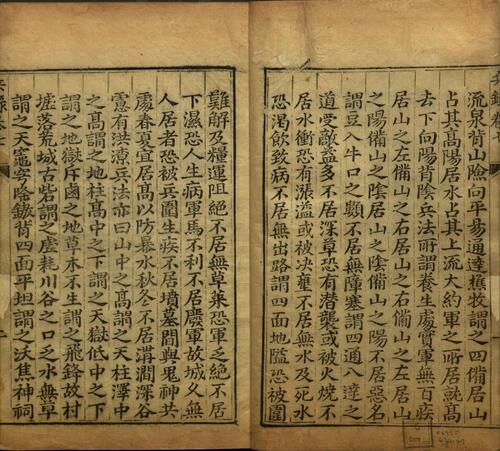 流泉背山險向平易通達樵牧謂之四備居山
占其高陽居水占其上流大約軍之所居就高
去下向陽背陰兵法所謂養生處實軍無百疾
居山之左備山之右居山之右備山之左居山
之陽備山之陰居山之陰備山之陽不居惡名
謂豆入牛口之類不居無障塞謂四通八達之
道受敵益多不居深草恐有潜襲或被火燒不
居水衝恐有漲溢或被決壅不居無水及死水
恐渴飲致病不居無出路謂四面地隘恐被圍
難解及糧運阻絶不居無草萊恐軍乏絶不居
下濕恐人生病軍馬不利不居廢軍故城久無
人居者恐被兵圍生疾不居墳墓間與鬼神共
處春夏宜居高以防暴水秋冬不居清澗深谷
慮有洪潦兵法亦曰山中之高謂之天柱澤中
之高謂之地柱高中之下謂之天獄低中之下
謂之地獄斥鹵之地草木不生謂之飛鋒故村
墟落荒城古砦謂之虚耗川谷之口乏水無草
謂之天竈安隆鏃背四面平坦謂之沃焦神祠
兵錄卷七